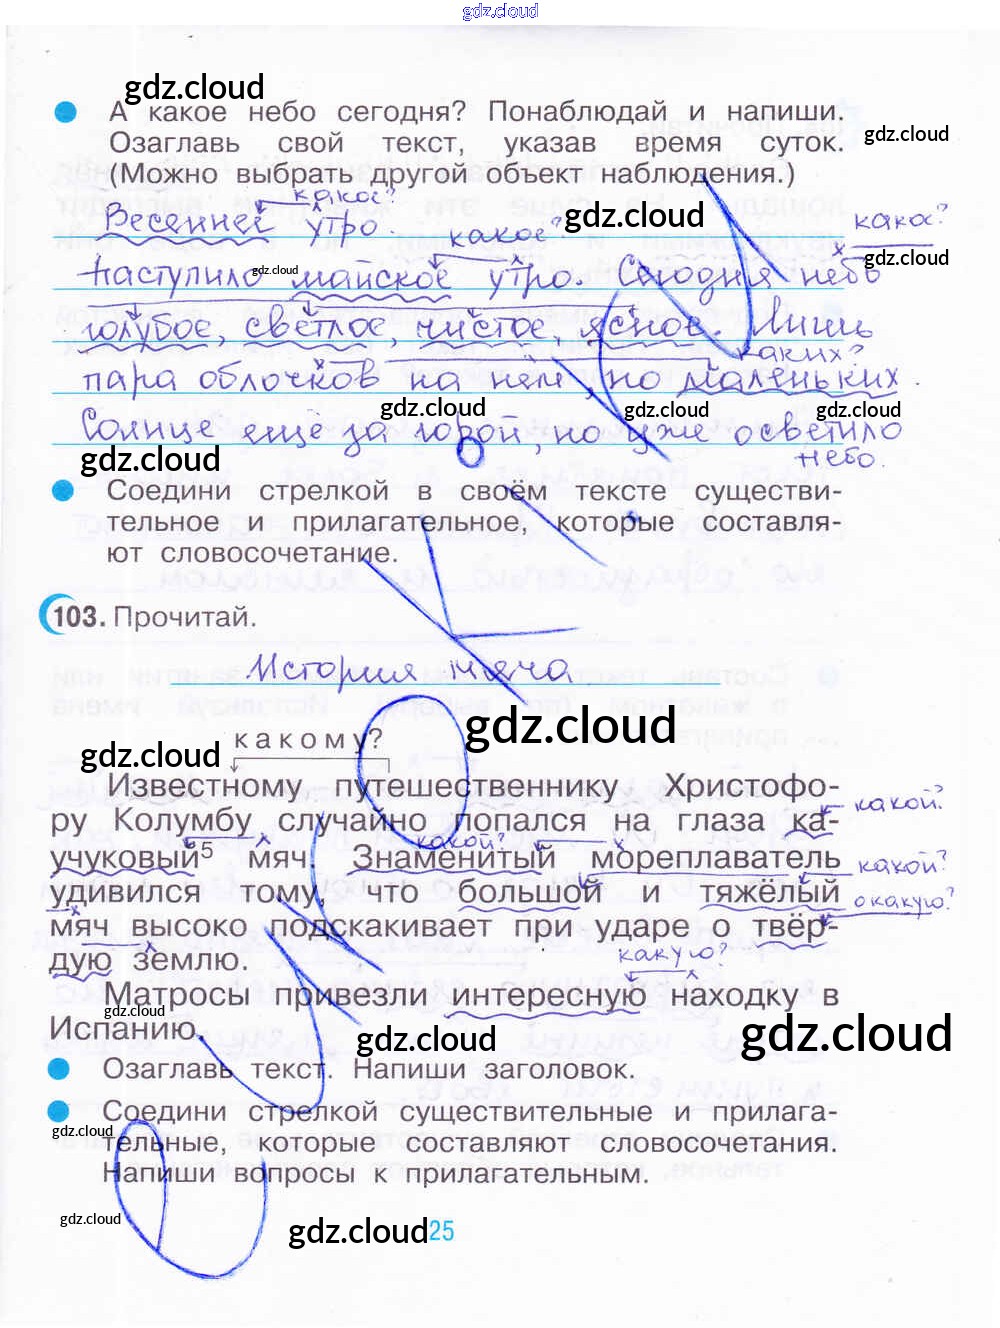 gdz.cloud
gdz.cloud
А какое небо сегодня? Понаблюдай и напиши.
gdz.cloud
Озаглавь свой текст, указав время суток.
(Можно выбрать другой объект наблюдения.)
какое?
Весенней утро.
gdz.cloud
какое?
какое?
gdz.cloud
Наступило майское утро. Сегодня небо
gdz.cloud
голубое, светлое, чистое, ясное. Лишь
каких?
пара облачков на нём, но маленьких.
gdz.cloud
gdz.cloud
gdz.cloud
Солнце ещё за горой, но уже осветило
небо.
gdz.cloud
Соедини стрелкой в своём тексте существи-
тельное и прилагательное, которые составля-
ют словосочетание.
103. Прочитай.
История мяча
gdz.cloud
какому?
gdz.cloud
Известному путешественнику Христофо-
какой?
ру Колумбу случайно попался на глаза ка-
какой?
учуковый⁵ мяч. Знаменитый мореплаватель
какой?
удивился тому, что большой и тяжёлый
о какую?
мяч высоко подскакивает при ударе о твёр-
дую землю.
какую?
Матросы привезли интересную находку в
gdz.cloud
Испанию.
gdz.cloud
gdz.cloud
Озаглавь текст. Напиши заголовок.
Соедини стрелкой существительные и прилага-
gdz.cloud
тельные, которые составляют словосочетания.
Напиши вопросы к прилагательным.
gdz.cloud
gdz.cloud
25